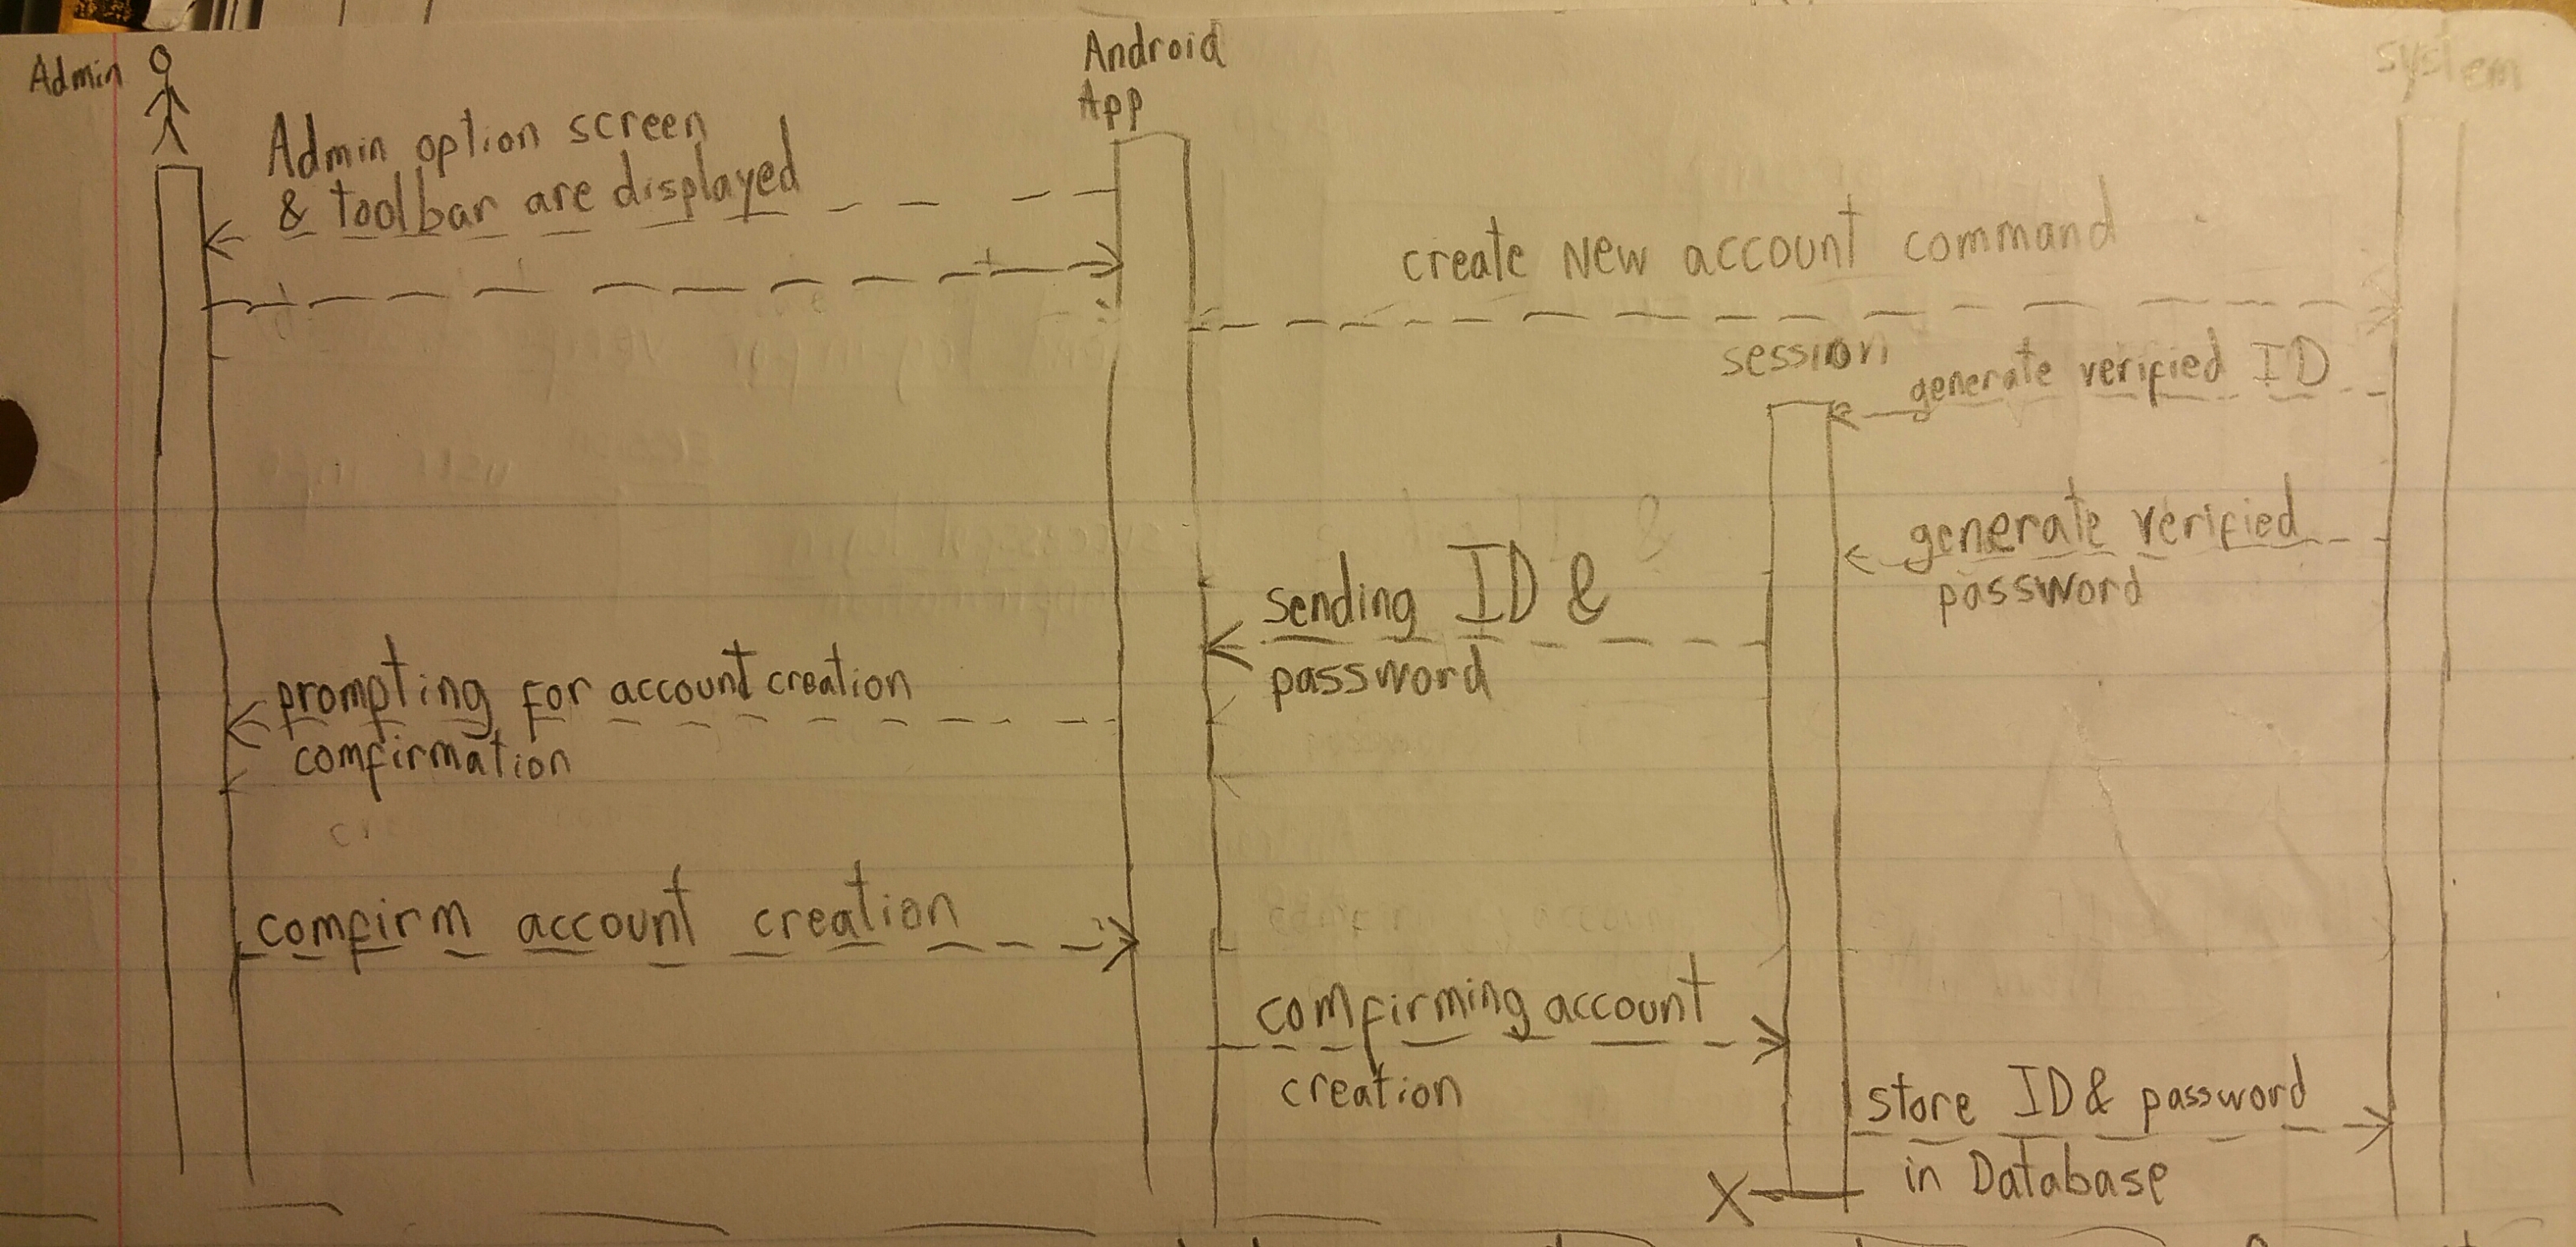 Admin
Android
App
system
Admin option screen
& toolbar are displayed
create New account command
session
generate verified ID
generate verified
password
sending ID &
password
prompting for account creation
comfirmation
comfirm account creation
comfirming account
creation
store ID & password
in Database
X